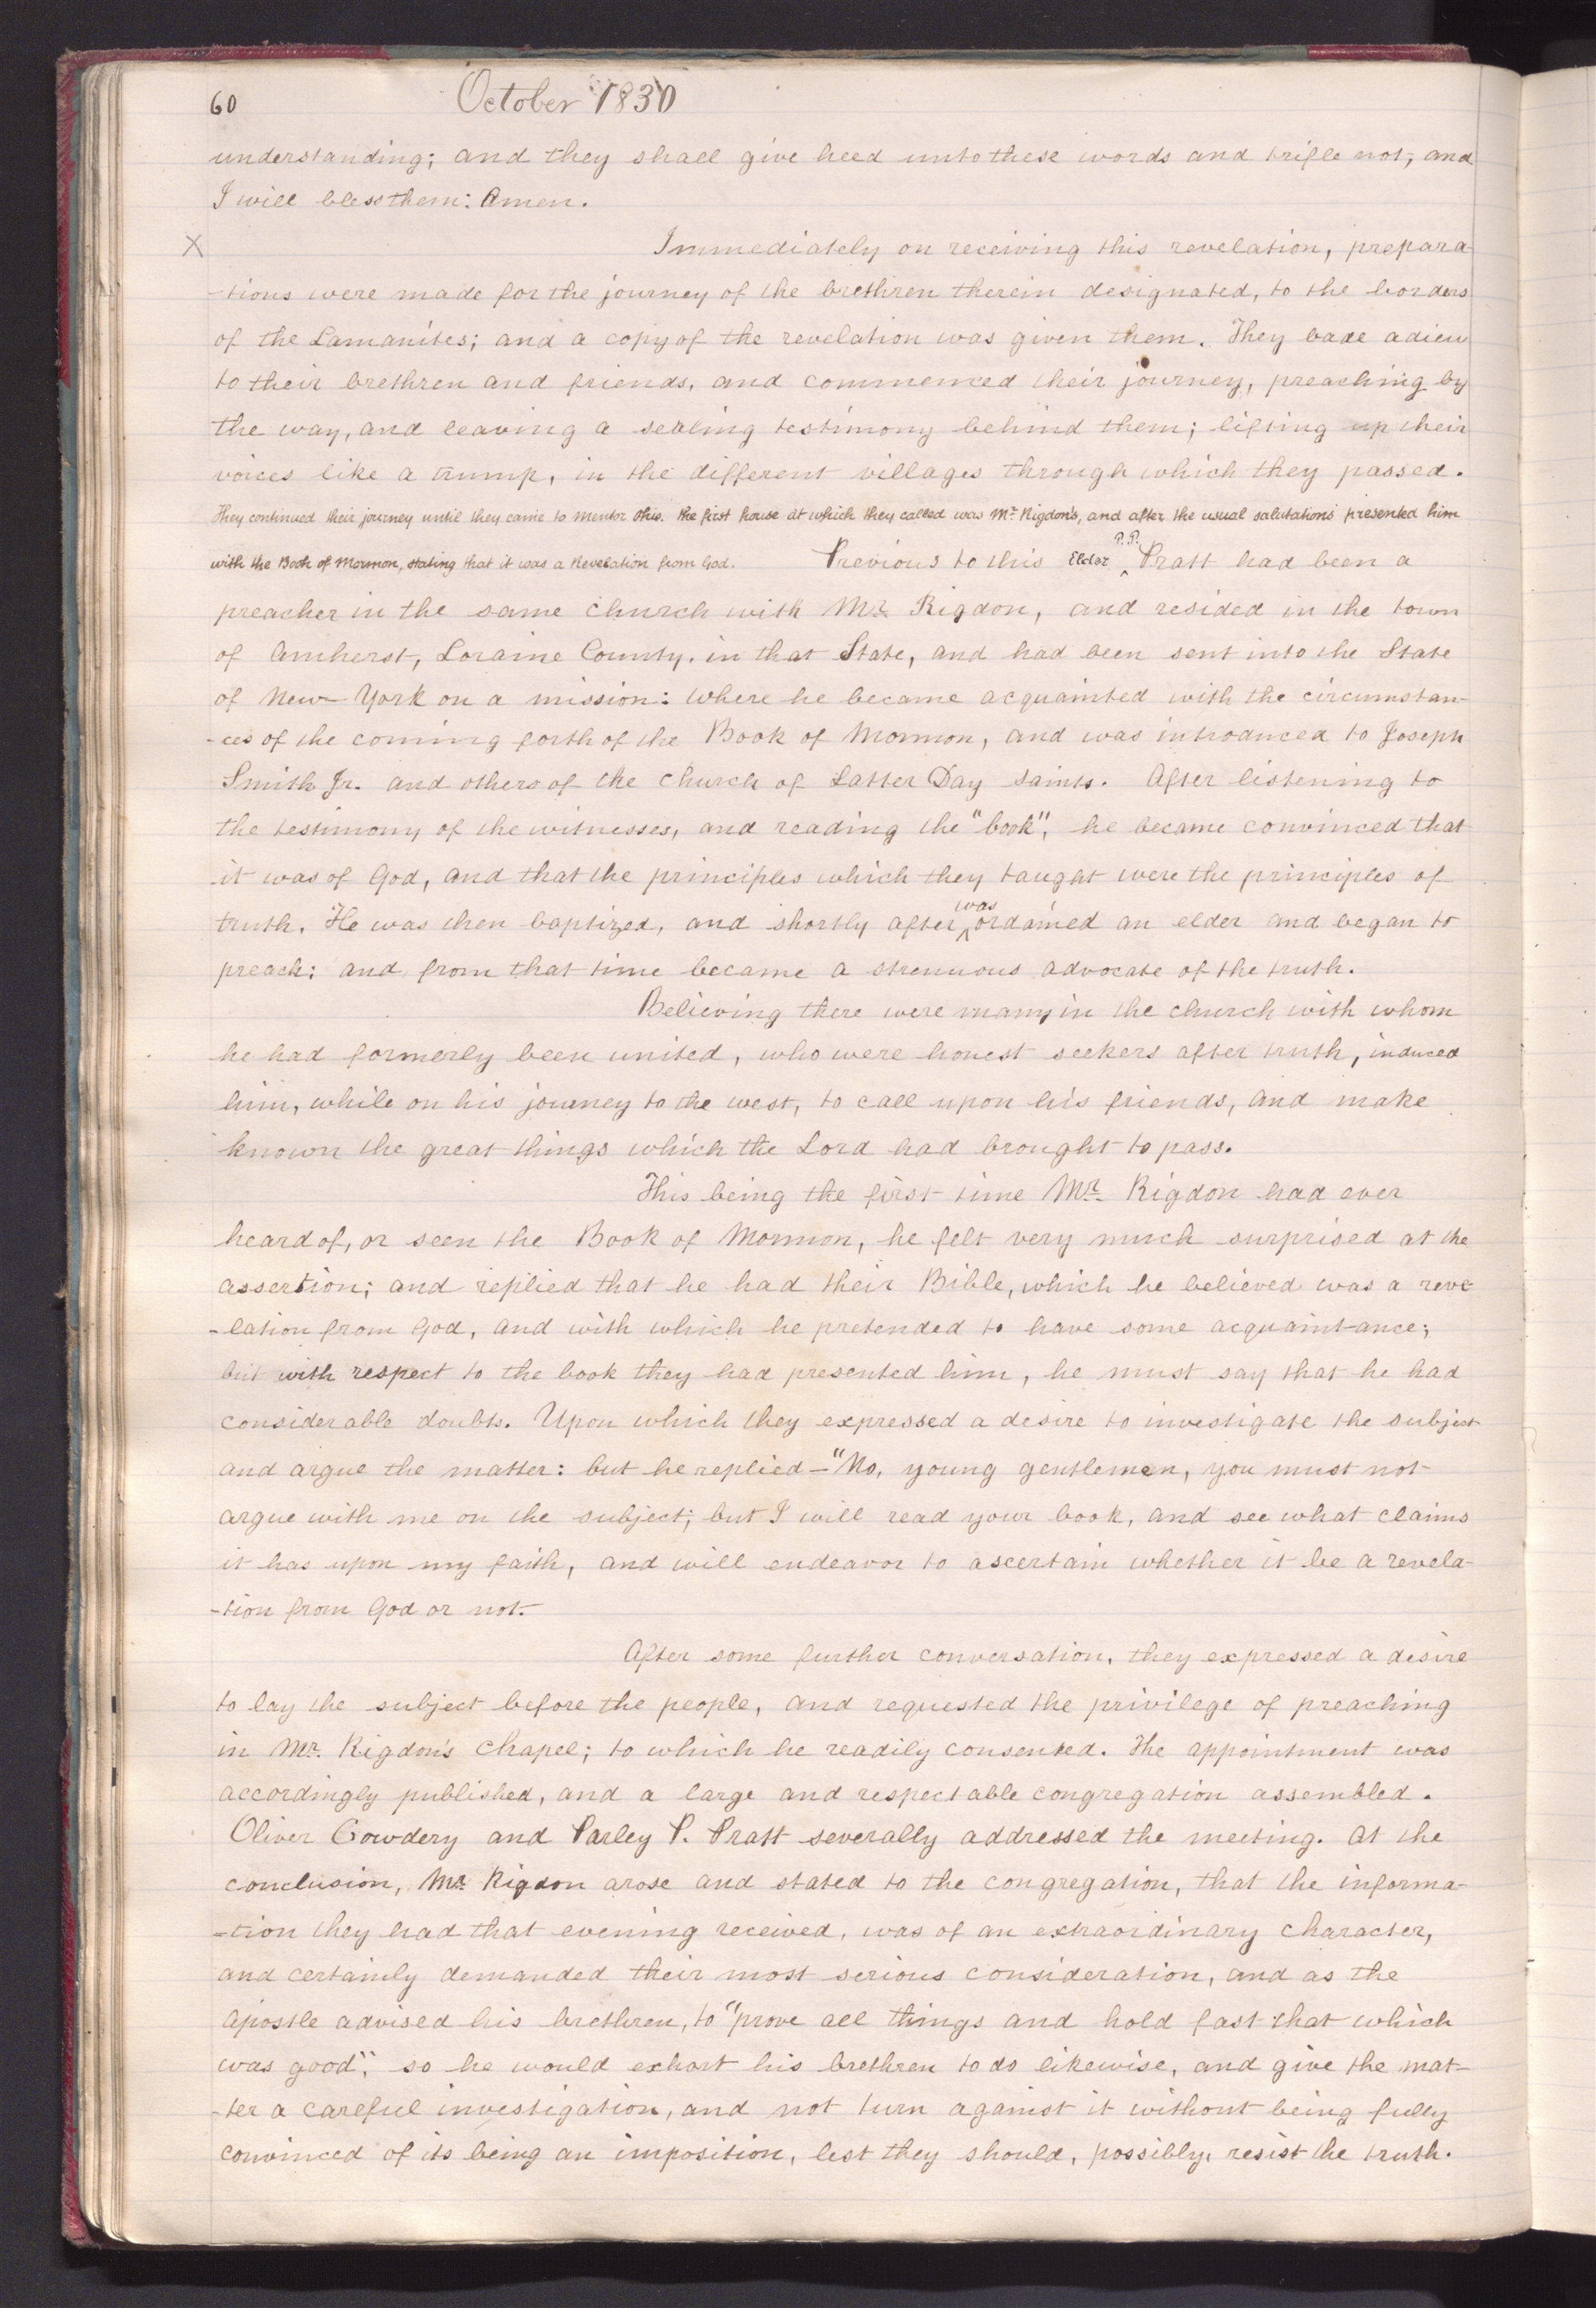 60 October 1830
understanding; and they shall give heed unto these words and trifle not, and
I will bless them: Amen.
X Immediately on receiving this revelation, prepara
-tions were made for the journey of the brethren therein designated, to the borders
of the Lamanites; and a copy of the revelation was given them. They bade adieu
to their brethren and friends, and commenced their journey, preaching by
the way, and leaving a sealing testimony behind them; lifting up their
voices like a trump, in the different villages through which they passed.
They continued their journey until they came to Mentor Ohio. the first house at which they called was Mr. Rigdon's, and after the usual salutations presented him
with the Book of Mormon, stating that it was a Revelation from God. Previous to this Elder P. P. Pratt had been a
preacher in the same church with Mr. Rigdon, and resided in the town
of Amherst, Loraine County, in that State, and had been sent into the State
of New York on a mission: where he became acquainted with the circumstan-
-ces of the coming forth of the Book of Mormon, and was introduced to Joseph
Smith Jr. and others of the church of Latter Day saints. After listening to
the testimony of the witnesses, and reading the "book", he became convinced that
it was of God, and that the principles which they taught were the principles of
truth. He was then baptized, and shortly after was ordained an elder and began to
preach: and from that time became a strenuous advocate of the truth.
Believing there were many in the church with whom
he had formerly been united, who were honest seekers after truth, induced
him, while on his journey to the west, to call upon his friends, and make
known the great things which the Lord had brought to pass.
This being the first time Mr. Rigdon had ever
heard of, or seen the Book of Mormon, he felt very much surprised at the
assertion; and replied that he had their Bible, which he believed was a reve
-lation from God, and with which he pretended to have some acquaintance;
but with respect to the book they had presented him, he must say that he had
considerable doubts. Upon which they expressed a desire to investigate the subject
and argue the matter: but he replied—"No, young gentlemen, you must not
argue with me on the subject; but I will read your book, and see what claims
it has upon my faith, and will endeavor to ascertain whether it be a revela-
-tion from God or not.
After some further conversation, they expressed a desire
to lay the subject before the people, and requested the privilege of preaching
in Mr. Rigdon's chapel; to which he readily consented. The appointment was
accordingly published, and a large and respectable congregation assembled.
Oliver Cowdery and Parley P. Pratt severally addressed the meeting. At the
conclusion, Mr. Rigdon arose and stated to the congregation, that the informa-
-tion they had that evening received, was of an extraordinary character,
and certainly demanded their most serious consideration, and as the
apostle advised his brethren, to "prove all things and hold fast that which
was good", so he would exhort his brethren to do likewise, and give the mat-
-ter a careful investigation, and not turn against it without being fully
convinced of its being an imposition, lest they should, possibly, resist the truth.